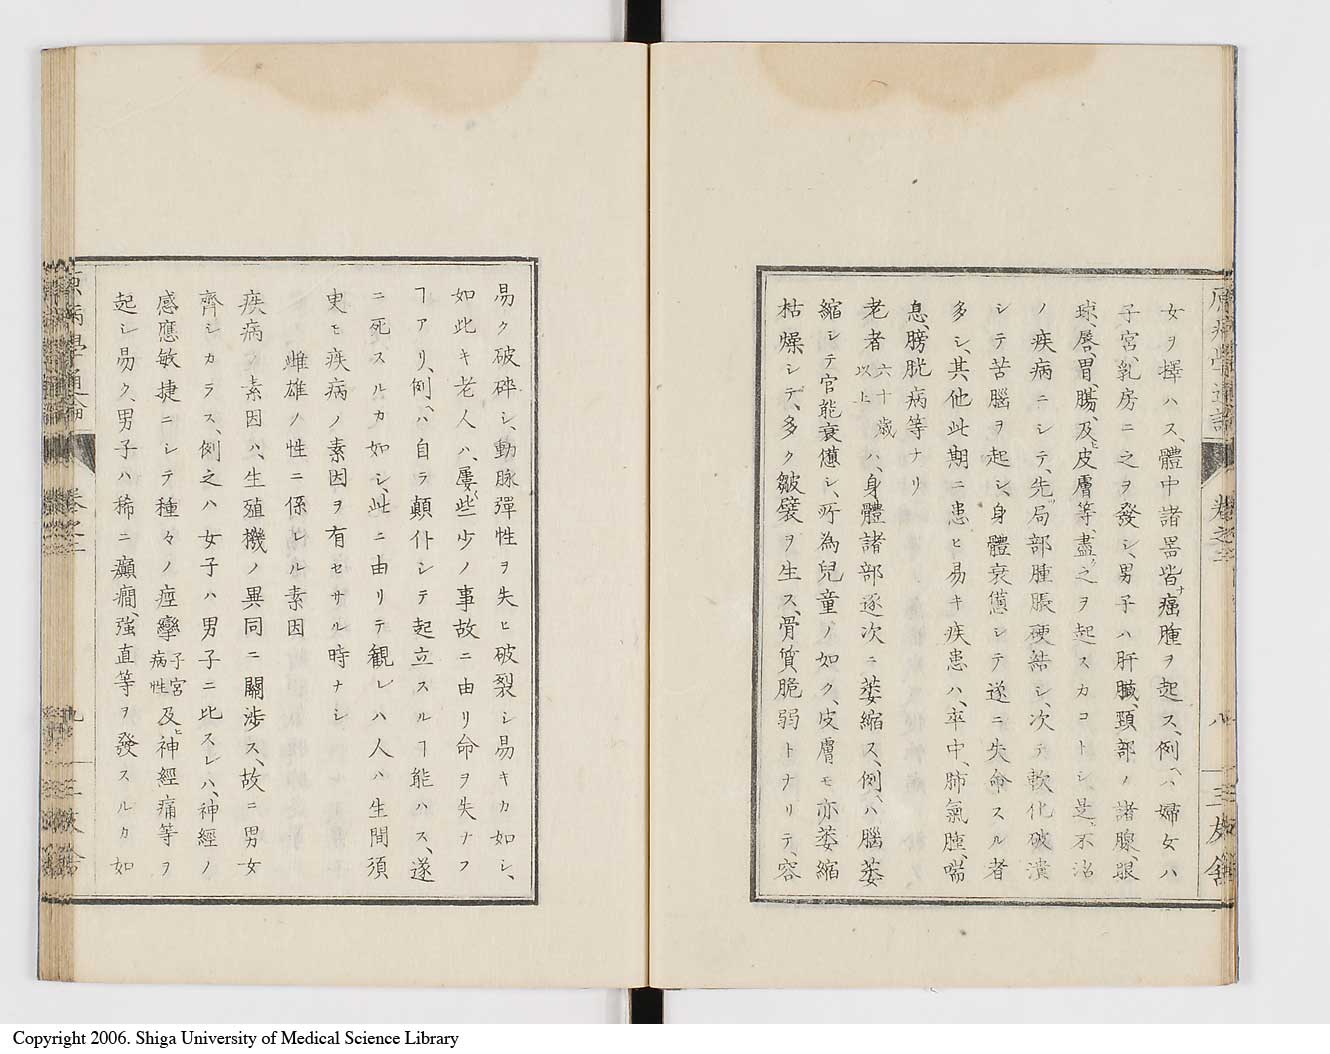 女ヲ擇ハス、體中諸噐皆ナ癌腫ヲ起ス、例ヘハ婦女ハ
子宮、乳房ニ之ヲ發シ、男子ハ肝臓、頸部ノ諸腺、眼
球、唇、胃、膓、及ヒ皮膚等、盡ク之ヲ起スカコトシ、是レ不治
ノ疾病ニシテ、先ツ局部腫脹硬結シ、次テ軟化破潰
シテ苦腦ヲ起シ、身體衰憊シテ遂ニ失命スル者
多シ、其他此期ニ患ヒ易キ疾患ハ、卒中、肺氣腫、喘
息、膀胱病等ナリ
老者六十歳以上ハ、身體諸部逐次ニ萎縮ス、例ヘハ腦萎
縮シテ官能衰憊シ、所為兒童ノ如ク、皮膚モ亦萎縮
枯燥シテ、多ク皺襞ヲ生ス、骨質脆弱トナリテ、容
原病學通論
卷之二
八
三友舎
易ク破砕シ、動脉彈性ヲ失ヒ破裂シ易キカ如シ、
如此キ老人ハ、屢〻些少ノ事故ニ由リ命ヲ失ナフ
ヿアリ、例ヘハ自ラ顚仆シテ起立スルヿ能ハス、遂
ニ死スルカ如シ、此ニ由リテ観レハ人ハ生間須
臾モ疾病ノ素因ヲ有セサル時ナシ
雌雄ノ性ニ係レル素因
疾病ノ素因ハ、生殖機ノ異同ニ關渉ス、故ニ男女
齊シカラス、例之ハ女子ハ男子ニ比スレハ、神經ノ
感應敏捷ニシテ種々ノ痙攣子宮病性及ヒ神經痛等ヲ
起シ易ク、男子ハ稀ニ癲癇、強直等ヲ發スルカ如
原病學通論
卷之二
九
三友舎
Copyright 2006. Shiga University of Medical Science Library